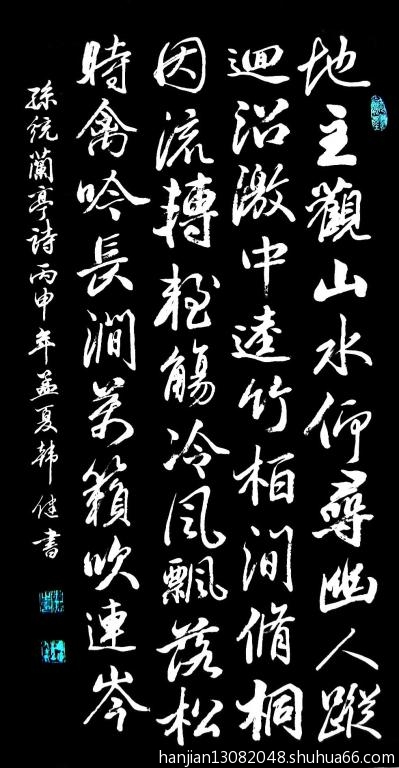 地主觀山水仰尋幽人蹤
迴沼激中逵竹柏澗脩桐
因流轉輕觴冷風飄落松
時禽吟長澗萬籟吹連岑
孫統蘭亭詩丙申年孟夏韓健書
hanjian13082048.shuhua66.com